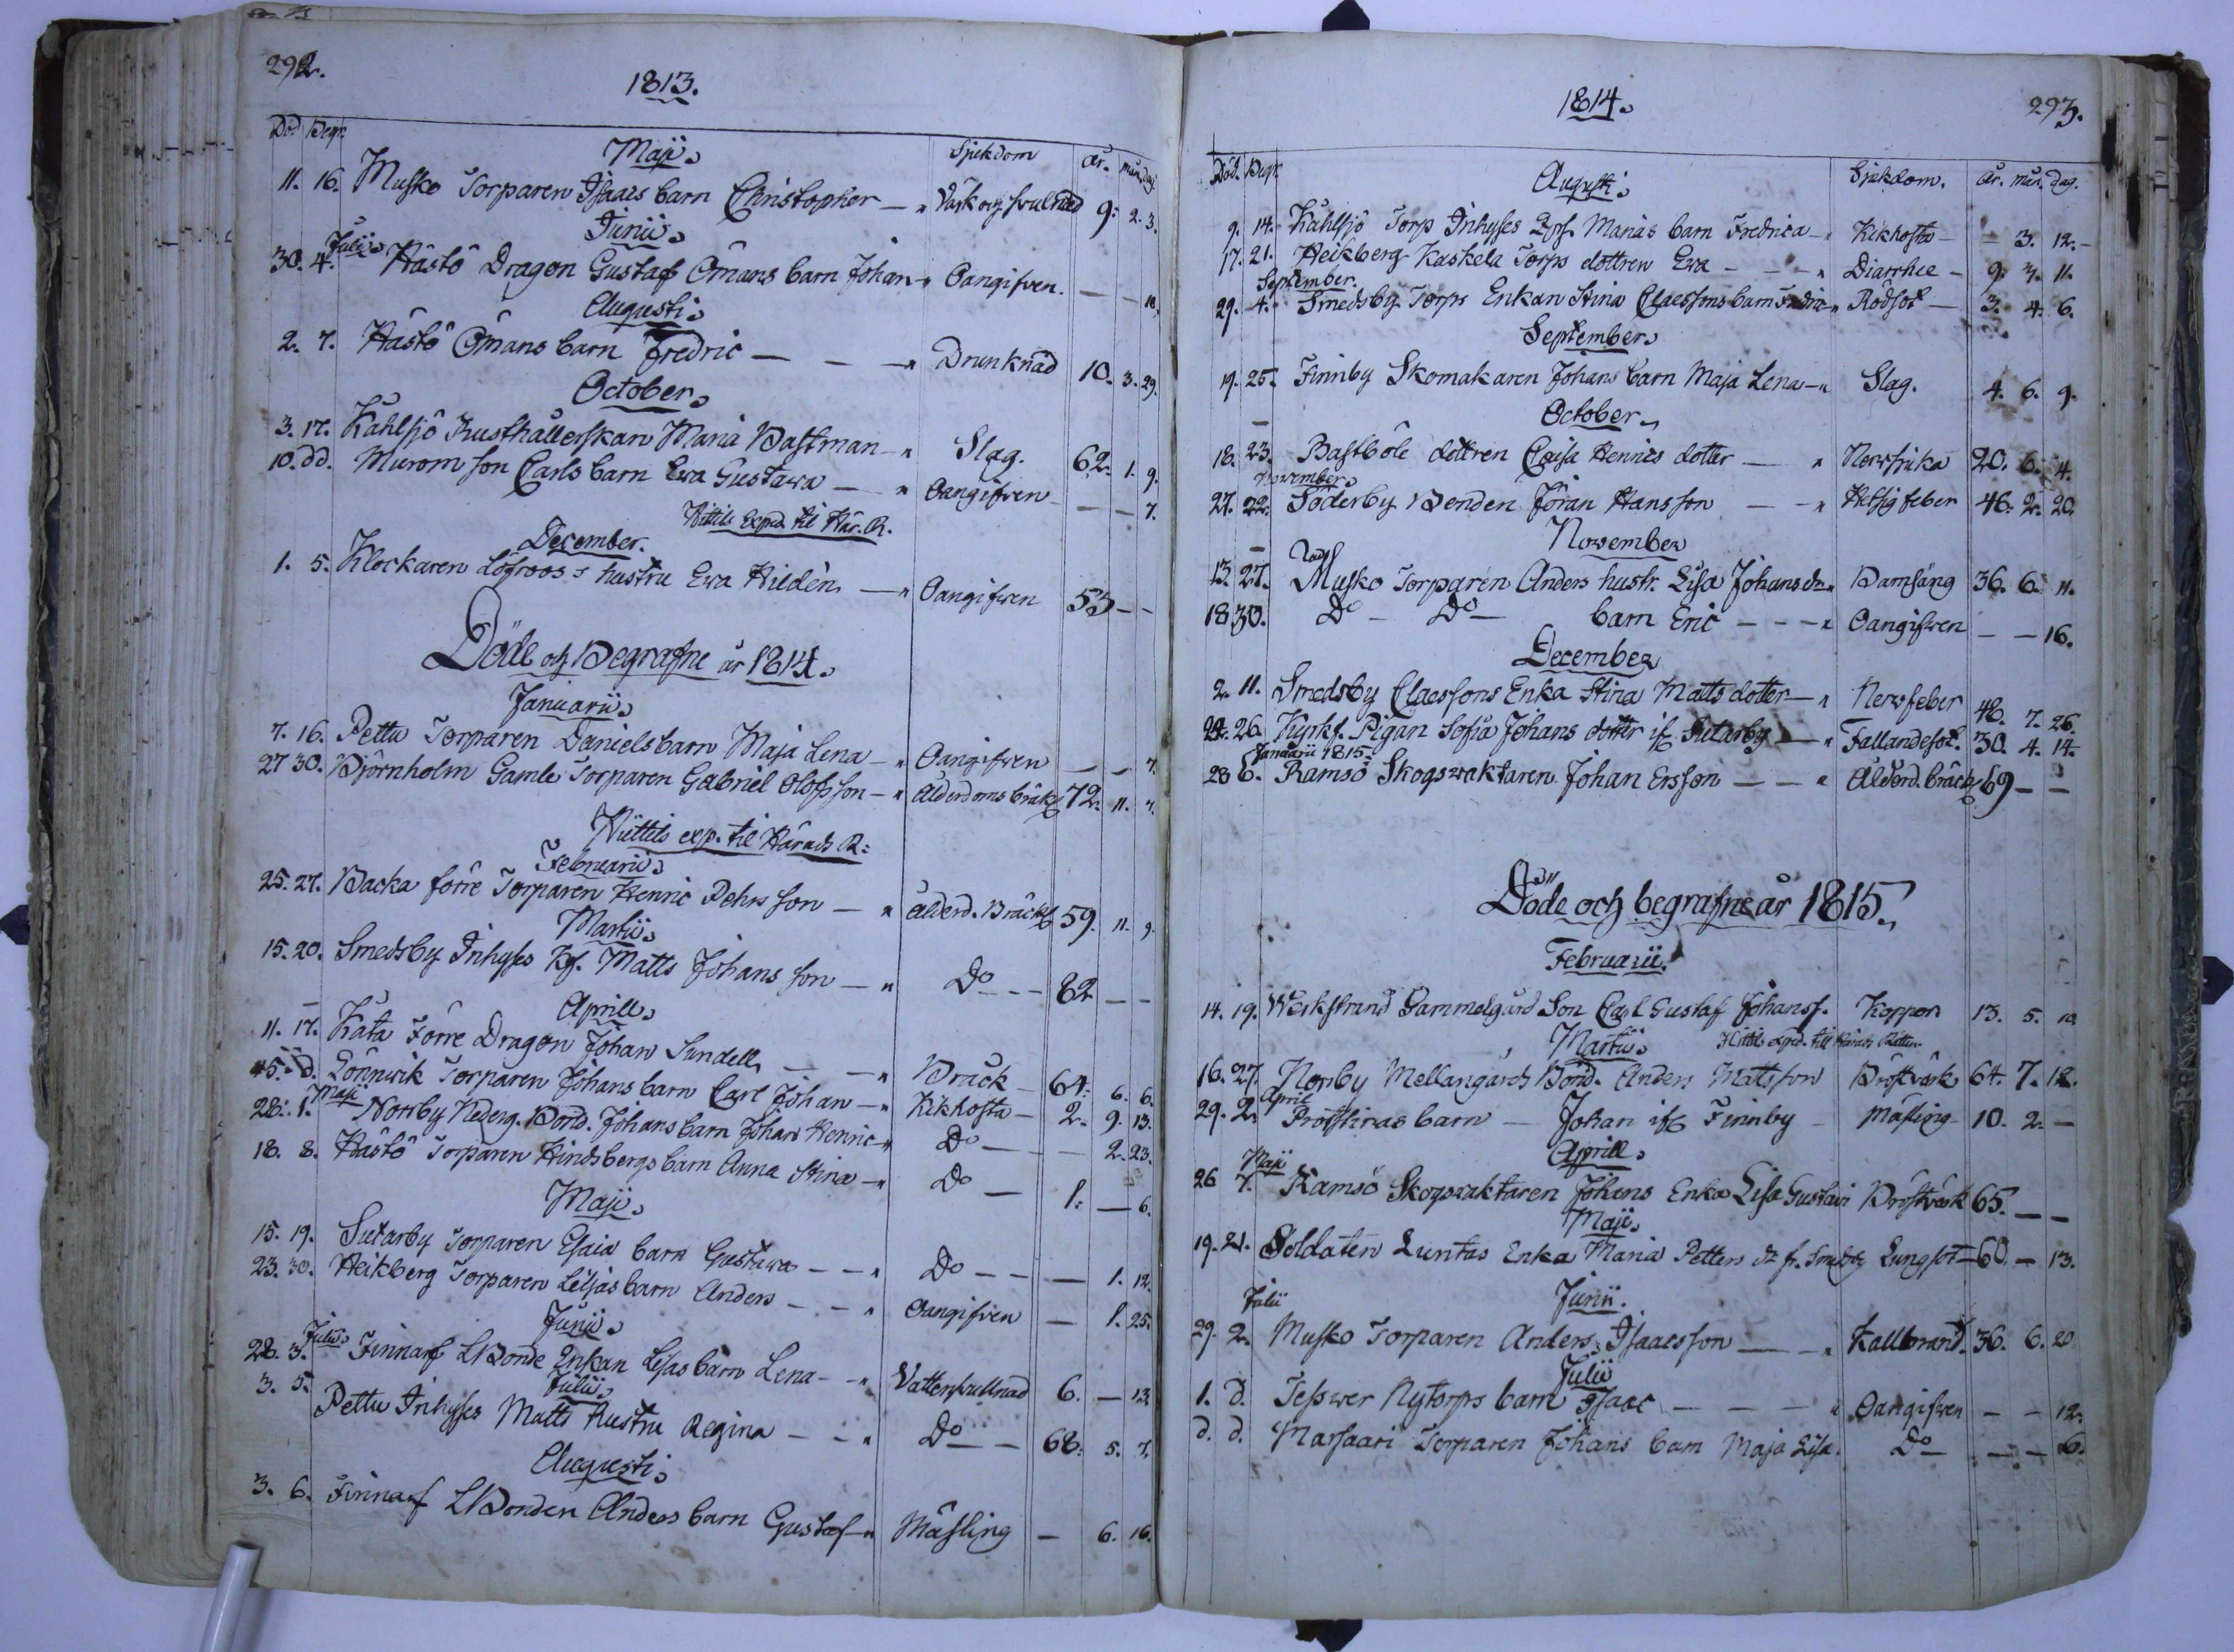 292.
1813.
Död Begr. Sjukdom år. mån. dag.
Maji
11. 16. Musko Torparen Isaacs barn Christopher — Värk och svulnad 9. 2. 3.
Junii
Julii
30. 4. Hästö Dragon Gustaf Ömans barn Johan Oangifven. — — 10.
Augusti
2. 7. Hästö Ömans barn Fredric — — Drunknad 10. 3. 29.
October
3. 17. Kahlsjö Rusthållerskan Maria Bastman Slag. 62. 1. 9.
10. dd. Murom son Carls barn Ewa Gustawa — Oangifven — — 7.
Kittils exped. til Här. R.
December.
1. 5. Klockaren Löfroos's hustru Ewa Hilden — Oangifven 53 — —
Döde och Begrafne år 1814.
Januarii
7. 16. Pettu Torparen Daniels barn Maja Lena — Oangifven — — 7.
27 30. Björnholm Gamle Torparen Gabriel Olofsson — Ålderdoms bräck 72. 11. 4.
Kittils exp. til Härads R:
Februarii
25. 27. Backa förre Torparen Henric Pehrsson — Ålderd. Bräck 59. 11. 9.
Martii
15. 20. Smedsby Inhyses Kf. Matts Johansson — Do — — 82 — —
Aprill
11. 17. Kata Förre Dragon Johan Sundell — — Bräck — 64. 6. 6.
15. d. Lönnwik Torparen Johans barn Carl Johan — Kikhosta — 2. 9. 13.
Maji
28. 1. Norrby Nederg. Bond. Johans barn Johan Henric Do — — 2. 23.
18. 8. Hästö Torparen Hindsbergs barn Anna Stina — Do — 1. — 6.
Maji
15. 19. Sutarby Torparen Esaia barn Gustawa — — Do — — — 1. 12.
23. 30. Heikberg Torparen barn Anders — — Oangifven — 1. 25.
Junii
Julii
28. 3. Finnarf LBonde Enkan Lisas barn Lena — Vattensvullnad 6. — 13.
Julii
3. 5. Pettu Inhyses Matts Hustru Regina — — Do — — 68. 5. 7.
Augusti
3. 6. Finnarf LBonden Anders barn Gustaf Mässling — 6. 16.
1814.
293.
Död. Begr. Sjukdom. år. mån. dag.
Augusti
9. 14. Kahlsjö Torp Inhyses Marias barn Fredrica — Kikhosta — — 3. 12.
17. 21. Heikberg Kaskela Torps dottren Ewa — — — Diarrhee — 9. 3. 11.
September.
29. 4. Smedsby Torps Enkan Stina Claessons barn Rödsot — 3. 4. 6.
September
19. 25. Finnby Skomakaren Johans barn Maja Lena — Slag. 4. 6. 9.
October
18. 23. Bastböle dottren Caisa Henrics dotter — Nervsjuka 20. 6. 4.
November
27. 22. Söderby Bonden Jöran Hansson — — Hetsig feber 46. 2. 20.
November
13. 27. Musko Torparen Anders hustr. Lisa Johans dr. Barnsäng 36. 6. 11.
18 30. Do — Do — barn Eric — — — Oangifven — — 16.
December
2. 11. Smedsby Claessons Enka Stina Matts dotter — Nervfeber 48. 7. 26.
24. 26. Kyrkf. Pigan Sofia Johans dotter if. Sutarby — Fallandesot. 30. 4. 14.
Januarii 1815.
28 6. Ramsö Skogvaktaren Johan Ersson — — Ålderd. bräck 69 — —
Döde och begrafne år 1815.
Februarii.
14. 19. Westrand Gammelgård Son Carl Gustaf Johanss. Koppor 13. 5. 10.
Martii Kittils exped. till Härads Rätten
16. 27. Norrby Mellangårds Bond. Anders Mattsson Bröstvärk 64. 7. 12.
April
29. 2. barn — Johan if. Finnby — Mässling 10. 2. —
Aprill
Maji
26 7. Ramsö Skogsvaktaren Johans Enka Lisa Gustavi Bröstvärk 65. — —
Maji
19. 21. Soldaten Luntas Enka Maria Petters dr. fr. Smedsby Lungsot 60. — 13.
Junii.
Julii
29. 2. Musko Torparen Anders Isaacsson — — Kallbrand. 36. 6. 20.
Julii
1. d. Tesswer Nytorps barn Isaac — — — Oangifven — — 12.
d. d. Marsaari Torparen Johans barn Maja Lisa. Do — — — 6.